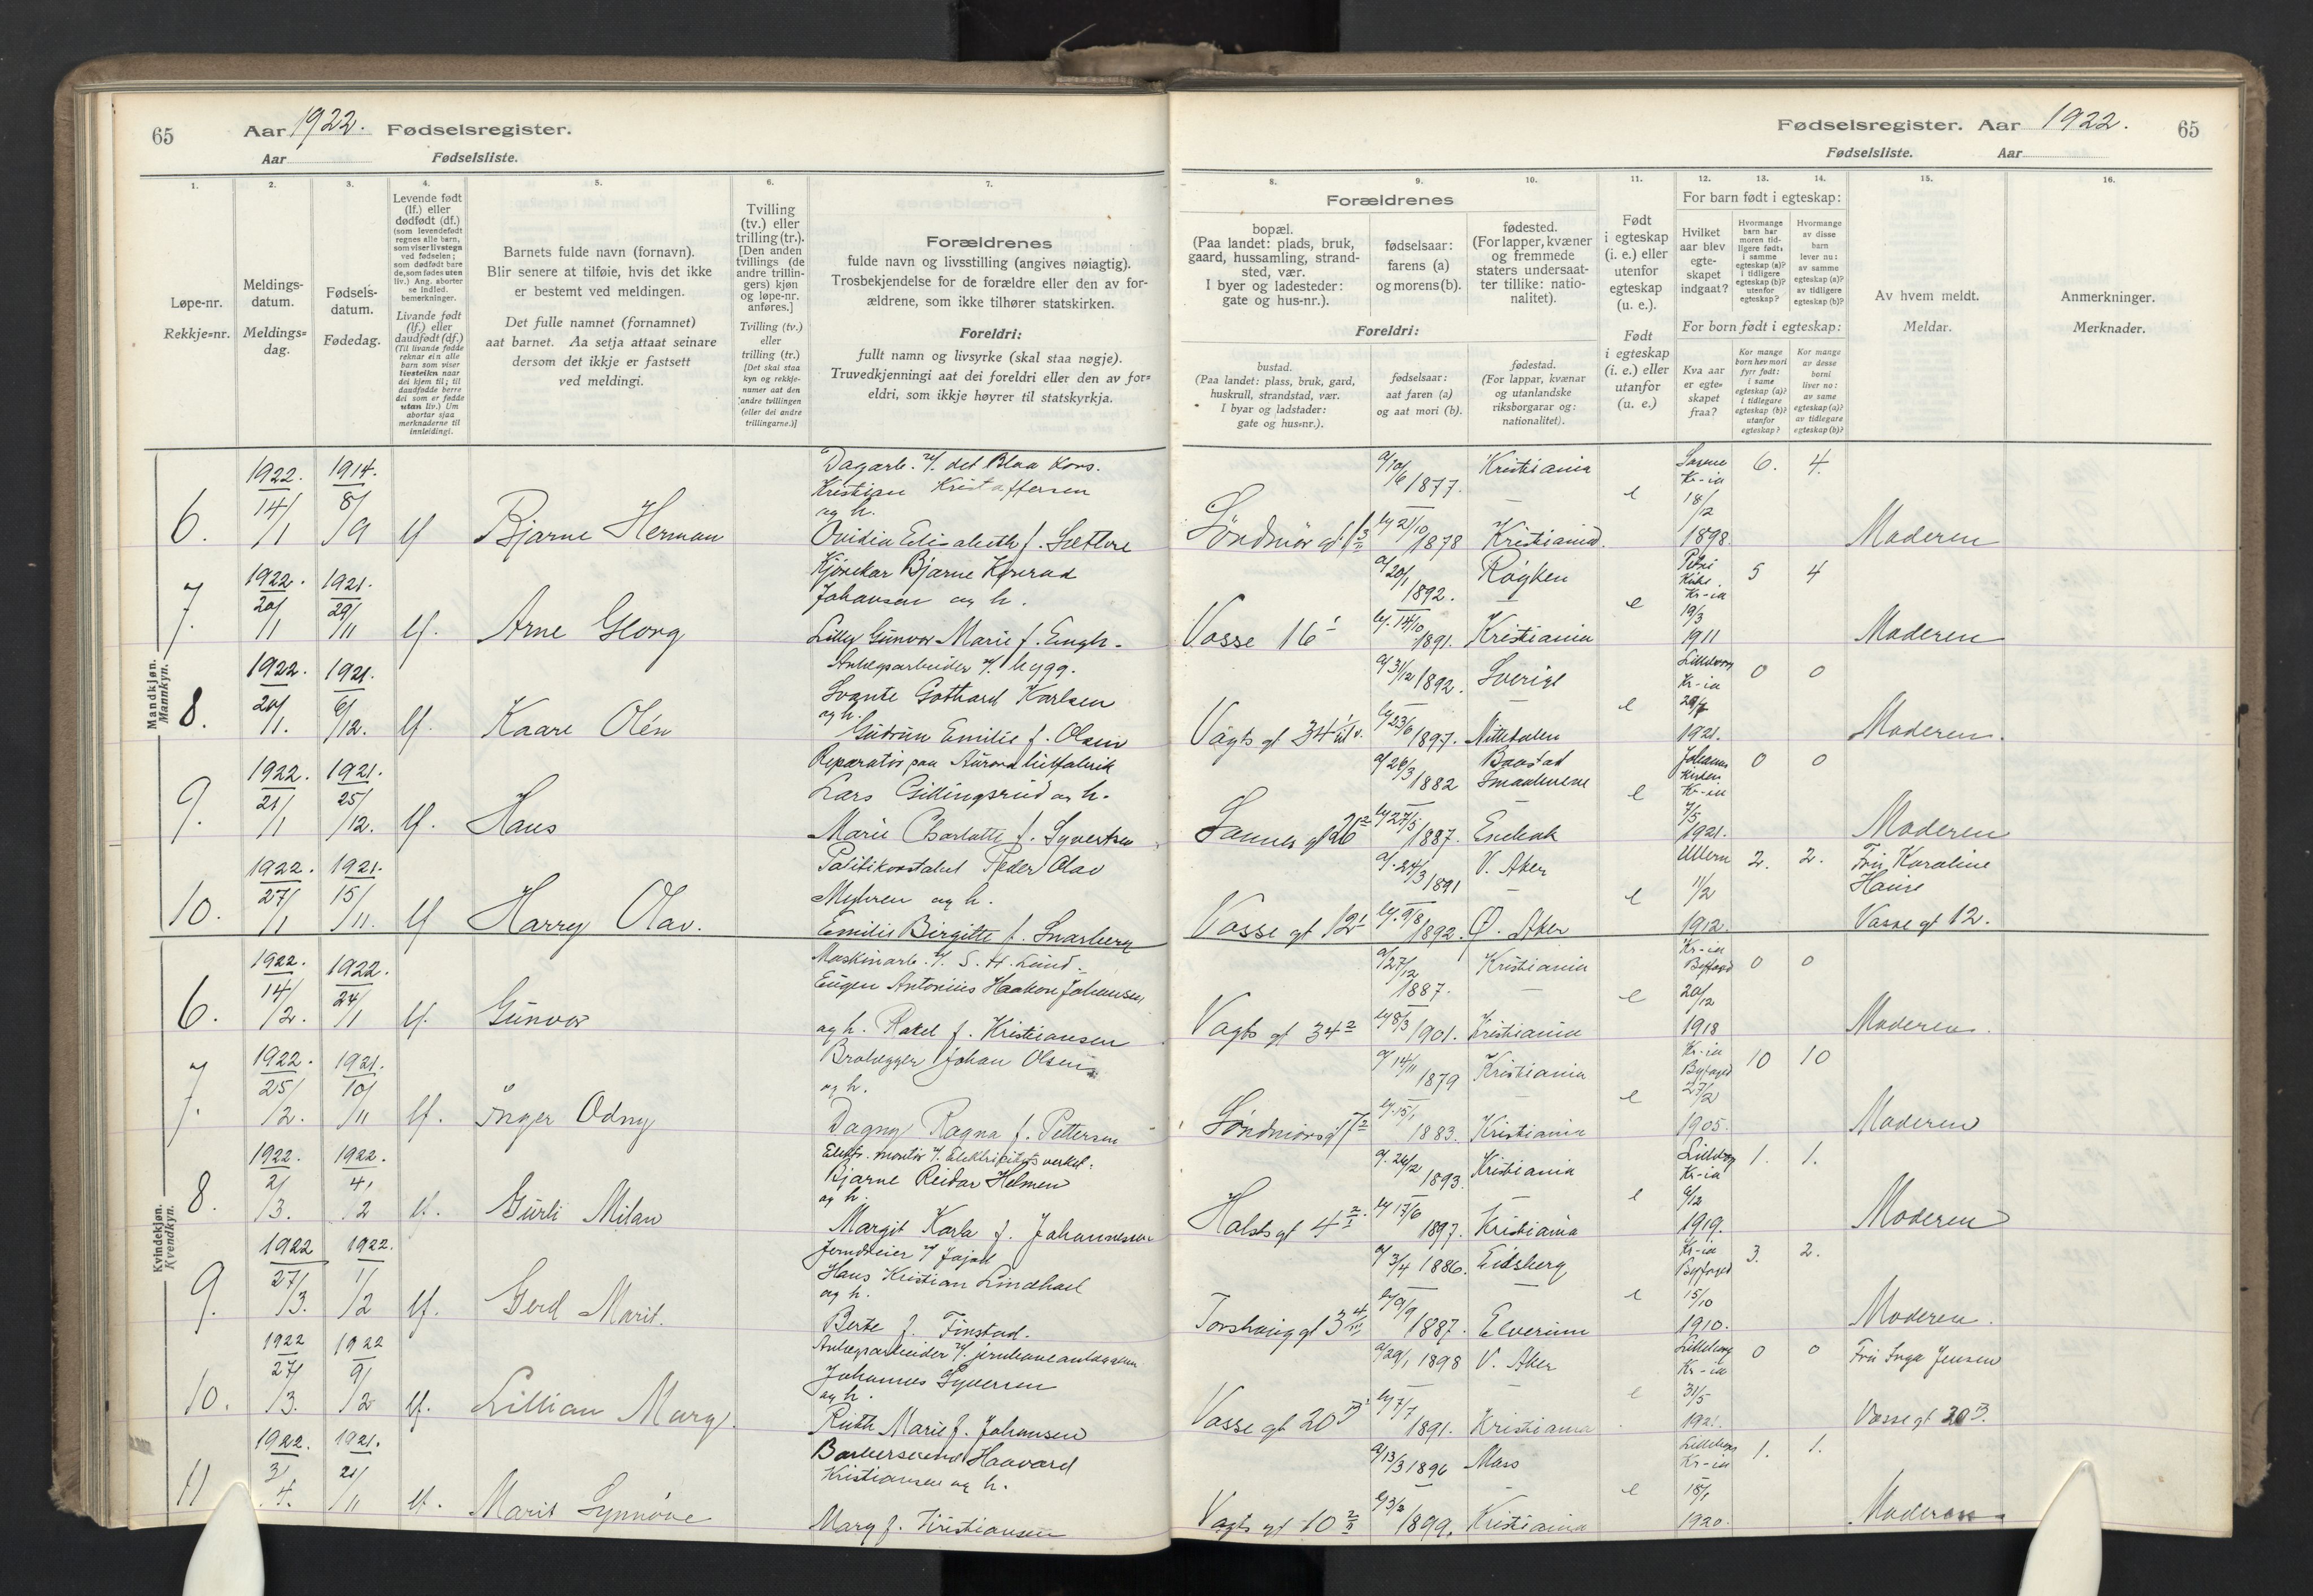 65 Aar 1922. Fødselsregister.
Aar Fødselsliste.
Fødselsregister. Aar 1922. 65
Fødselsliste. Aar
1. 2. 3. 4. 5. 6. 7.
Løpe-nr.
Rekkje=nr.
Meldings-
datum.
Meldings=
dag.
Fødsels-
datum.
Fødedag.
Levende født
(lf.) eller
dødfødt (df.)
(som levendefødt
regnes alle barn,
som viser livstegn
ved fødselen;
som dødfødt bare
de, som fødes uten
liv.) Ang. aborter
se indled.
bemerkninger.
Livande født
(lf.) eller
daudfødt (df.)
(Til livande fødde
reknar ein alle
barn som viser
livsteikn naar
dei kjem til; til
daudfødde berre
dei som er fødde
utan liv.) Um
abortar sjaa
merknaderne til
innleidingi.
Barnets fulde navn (fornavn).
Blir senere at tilføie, hvis det ikke
er bestemt ved meldingen.
Det fulle namnet (fornamnet)
aat barnet. Aa setja attaat seinare
dersom det ikkje er fastsett
ved meldingi.
Tvilling
(tv.) eller
trilling (tr.).
[Den anden
tvillings (de
andre trillin-
gers) kjøn
og løpe-nr.
anføres.]
Tvilling (tv.)
eller
trilling (tr.)
[Det skal staa
kyn og rekkje-
numer aat den
andre tvillingen
(eller dei andre
trillingarne.)]
Forældrenes
fulde navn og livsstilling (angives nøiagtig).
Trosbekjendelse for de forældre eller den av for-
ældrene, som ikke tilhører statskirken.
Foreldri:
fullt namn og livsyrke (skal staa nøgje).
Truvedkjenningi aat dei foreldri eller den av for=
eldri, som ikkje høyrer til statskyrkja.
8. 9. 10. 11. 12. 13. 14. 15. 16.
Forældrenes
bopæl.
(Paa landet: plads, bruk,
gaard, hussamling, strand-
sted, vær.
I byer og ladesteder:
gate og hus-nr.).
fødselsaar:
farens (a)
og morens (b).
fødested.
(For lapper, kvæner
og fremmede
staters undersaat-
ter tillike: natio-
nalitet).
Foreldri:
bustad.
(Paa landet: plass, bruk, gard,
huskrull, strandstad, vær.
I byar og ladstader:
gate og hus=nr.).
fødselsaar:
aat faren (a)
og aat mori (b).
fødestad.
(For lappar, kvænar
og utanlandske
riksborgarar og:
nationalitet).
Født
i egteskap
(i. e.) eller
utenfor
egteskap
(u. e.).
Født
i egteskap
(i. e.) eller
utanfor
(u. e.)
For barn født i egteskap:
Hvilket
aar blev
egte-
skapet
indgaat?
Hvormange
barn har
moren tid-
ligere født:
i samme
egteskap (a)?
i tidligere
egteskap (b)?
utenfor
egteskap?
Hvormange
av disse
barn
lever nu:
av samme
egteskap (a)?
av tidligere
egteskap (b)?
For born født i egteskap:
Kva aar
er egte=
skapet
fraa?
Kor mange
born hev mori
fyrr født:
i same
egteskap (a)?
i tidlegare
egteskap (b)?
utanfor
egteskap?
Kor mange
av desse
borni
liver no:
av same
egteskap (a)?
av tidlegare
egteskap (b)?
Av hvem meldt.
Meldar.
Anmerkninger.
Merknader.
Mandkjøn.
Mannkyn.
6. 1922. 14/1 1914. 8/9 lf Bjarne Herman
Dagarb. v/. det Blaa Kors.
Kristian Kristoffersen
og h.
Ovidia Elisabeth f. Sættre
Søndmør gt a/10/6 1877. Kristiania
b/21/10 1878 Kristiania.
e 18/2 1898. 6. 4. Moderen
7. 1922. 20/1 1921. 29/11 lf. Arne Georg
Kjørekar Bjarne Konrad
Johansen og h.
Lilly Gunvor Marie f. Engh.
Vosse 16 a/20/1 1892. Røyken
b/14/10 1891. Kristiania
e Petri Kirke. Kr-ia 19/3 1911 5 4 Moderen
8. 1922. 20/1. 1921. 6/12. lf. Kaare Olén
Anlegsarbeider v/. bygg.
Svante Gothard Karlsen
og h.
Gudrun Emilie f. Olsen
Vogts gt 34 a/31/12 1892. Sverige
b/23/6 1897. Nittedalen
e Lilleborg Kr-ia 1921. 0 0 Moderen.
9. 1922. 21/1 1921. 25/12. lf. Hans
Reparatør paa
Lars Gillingsrud og h.
Marie Charlotte f. Syvertsen
Sannergt 26 a/26/3 1882 Baastad Smaalenene
b/27/5 1887. Enebak
e Johannes Kirken Kr-ia 7/5 1921. 0 0 Moderen
10. 1922. 27/1 1921. 15/11. lf Harry Olav.
Politikonstabel Peder Olav
Myhren og h.
Emilie Birgitte f. Snarberg
Vosse gt 12 a/24/3 1891 V. Aker
b/9/8 1892. Ø. Aker
e Ullern 11/2 1912. 2. 2. Fru Karoline
Vosse gt 12.
Kvindekjøn.
Kvendkyn.
6. 1922. 14/2. 1922. 24/1 lf. Gunvor
Maskinarb. v/. S. H. Lund.
Eugen Antonius Haakon Johansen
og h. Rakel f. Kristiansen
Vogts gt 34 a/27/12 1887. Kristiania
b/8/3 1901. Kristiania
e Kr-ia Byfoged 20/12 1918 0 0 Moderen.
7. 1922. 25/2. 1921. 10/11 lf. Inger Odny
Brolegger Johan Olsen
og h.
Dagny Ragna f. Pettersen
Søndmørsgt 7 a/14/11 1879 Kristiania
b/15/1 1883. Kristiania
e Kr-ia Byfoged 27/2 1905. 10 10 Moderen
8. 1922. 2/3. 1922. 4/2 lf. Gurli Milan
Elektr. montør v/. Elektricitetsverket.
Bjarne Reidar Helmen
og h.
Margit Karla f. Johannessen
Holsts gt 4 a/26/2 1893. Kristiania
b/17/6 1897. Kristiania
e Lilleborg Kr-ia 6/12 1919. 1. 1. Moderen
9. 1922 27/3. 1922. 1/2 lf. Gerd Marit.
Hans Kristian Lindhael
og h.
Berte f. Finstad.
Torshauggt 3 a/3/4 1886. Eidsberg
b/9/9 1887. Elverum
e Kr-ia Byfoged 15/10 1910. 3. 2. Moderen.
10. 1922 27/3. 1922 9/2 lf. Lillian Mary.
Anlegsarbeider v/. jernbaneanlæggene
Johannes Syversen
og h.
Ruth Marie f. Johansen
Vosse gt 20 B a/29/1 1898 V. Aker
b/7/7 1891. Kristiania
e Lilleborg Kr-ia 31/5 1921. 0 0 Fru Inga Jensen
Vosse gt 20 B.
11 1922. 3/4. 1921. 21/11 lf. Marit Synnøve
Barbersvend Haavard
Kristiansen og h.
Mary f. Kristiansen
Vogts gt 10 a/13/3 1896 Moss
b/3/2 1899. Kristiania
e Lilleborg Kr-ia 18/1 1920. 1. 1. Moderen